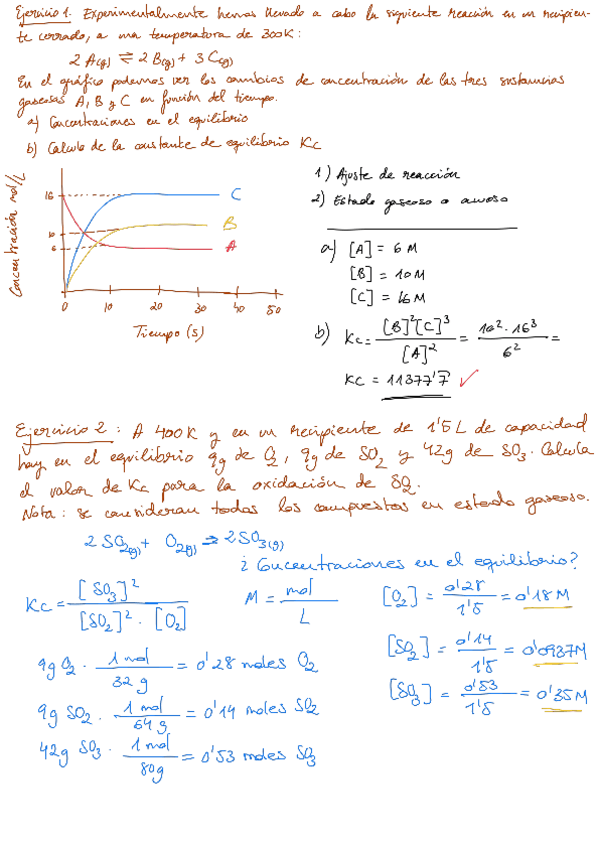 Ejercicio 1. Experimentalmente hemos llevado a cabo la siguiente reacción en un recipien-
te cerrado, a una temperatura de 300K:
2 A(g) ⇌ 2 B(g) + 3 C(g)
En el gráfico podemos ver los cambios de concentración de las tres sustancias
gaseosas A, B y C en función del tiempo.
a) Concentraciones en el equilibrio
b) Calculo de la constante de equilibrio Kc
Concentración mol/L
16
10
6
C
B
A
0 10 20 30 40 50
Tiempo (s)
1) Ajuste de reacción
2) Estado gaseoso o acuoso
a) [A] = 6 M
[B] = 10 M
[C] = 16 M
b) Kc = [B]²[C]³ / [A]² = 10² · 16³ / 6² =
Kc = 11377'7 ✓
Ejercicio 2: A 400K y en un recipiente de 1'5 L de capacidad
hay en el equilibrio 9g de O2, 9g de SO2 y 42g de SO3. Calcula
el valor de Kc para la oxidación de SO2.
Nota: se consideran todos los compuestos en estado gaseoso.
2 SO2(g) + O2(g) ⇌ 2 SO3(g)
¿Concentraciones en el equilibrio?
Kc = [SO3]² / [SO2]² · [O2]
M = mol / L
[O2] = 0'28 / 1'5 = 0'18 M
[SO2] = 0'14 / 1'5 = 0'0937M
[SO3] = 0'53 / 1'5 = 0'35 M
9g O2 · 1 mol / 32 g = 0'28 moles O2
9g SO2 · 1 mol / 64 g = 0'14 moles SO2
42g SO3 · 1 mol / 80g = 0'53 moles SO3